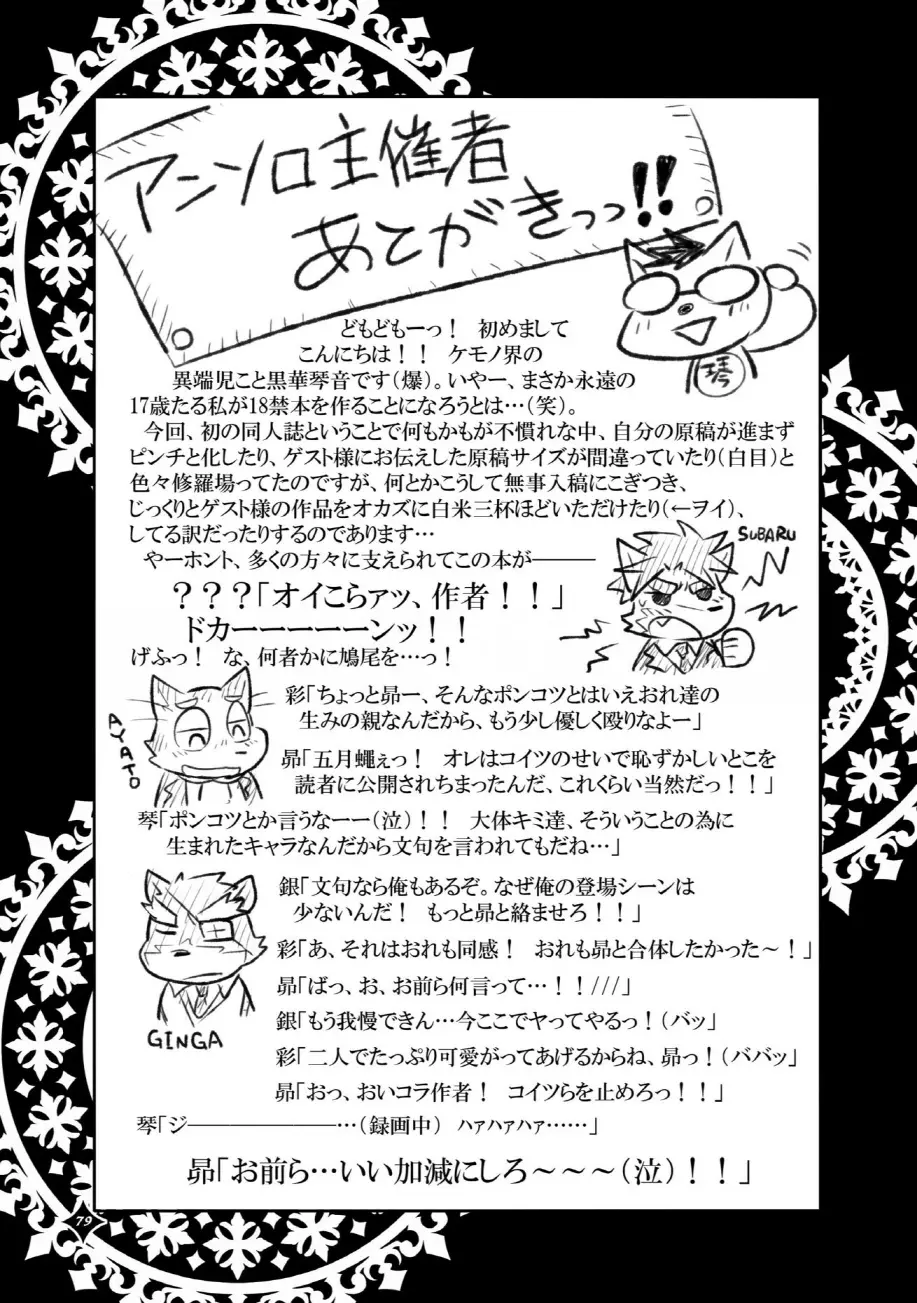 アンソロ主催者
あとがきっっ!!
琴
どもどもーっ！　初めまして
こんにちは！！　ケモノ界の
異端児こと黒華琴音です（爆）。いやー、まさか永遠の
17歳たる私が18禁本を作ることになろうとは…（笑）。
今回、初の同人誌ということで何もかもが不慣れな中、自分の原稿が進まず
ピンチと化したり、ゲスト様にお伝えした原稿サイズが間違っていたり（白目）と
色々修羅場ってたのですが、何とかこうして無事入稿にこぎつき、
じっくりとゲスト様の作品をオカズに白米三杯ほどいただけたり（←ヲイ）、
してる訳だったりするのであります…
やーホント、多くの方々に支えられてこの本が————
SUBARU
？？？「オイこらァッ、作者！！」
ドカーーーーーンッ！！
げふっ！　な、何者かに鳩尾を…っ！
AYATO
彩「ちょっと昴ー、そんなポンコツとはいえおれ達の
生みの親なんだから、もう少し優しく殴りなよー」
昴「五月蠅ぇっ！　オレはコイツのせいで恥ずかしいとこを
読者に公開されちまったんだ、これくらい当然だっ！！」
琴「ポンコツとか言うなーー（泣）！！　大体キミ達、そういうことの為に
生まれたキャラなんだから文句を言われてもだね…」
銀「文句なら俺もあるぞ。なぜ俺の登場シーンは
少ないんだ！　もっと昴と絡ませろ！！」
彩「あ、それはおれも同感！　おれも昴と合体したかった～！」
昴「ばっ、お、お前ら何言って…！！///」
GINGA
銀「もう我慢できん…今ここでヤってやるっ！（バッ」
彩「二人でたっぷり可愛がってあげるからね、昴っ！（ババッ」
昴「おっ、おいコラ作者！　コイツらを止めろっ！！」
琴「ジ——————————…（録画中）　ハァハァハァ……」
昴「お前ら…いい加減にしろ～～～（泣）！！」
79